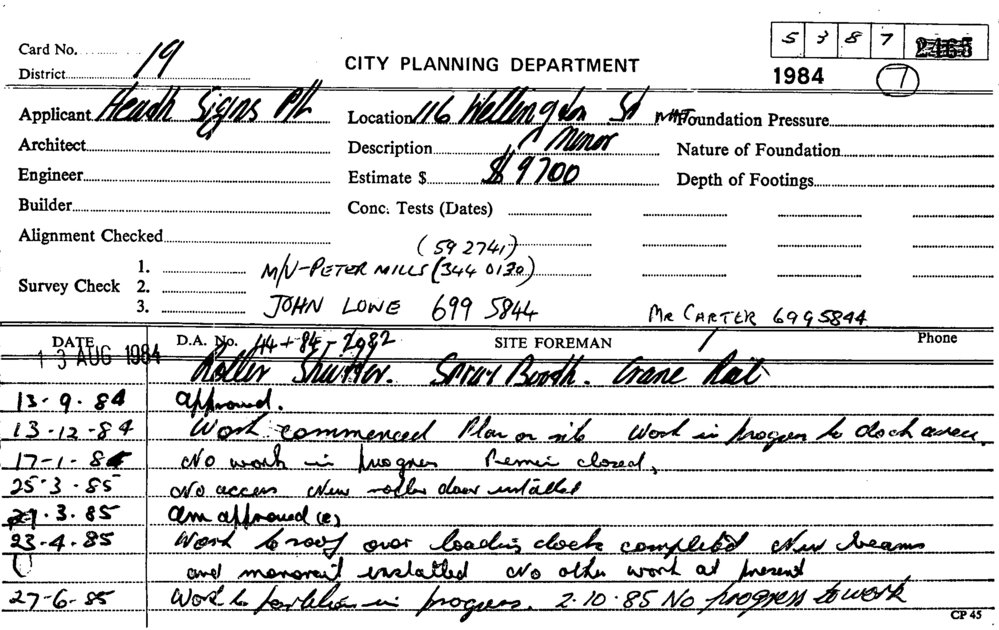 5 3 8 7 2465
Card No. 19
CITY PLANNING DEPARTMENT
District
1984 7
Applicant Heath Signs P/L Location 116 Wellington St Foundation Pressure
Architect Description Minor Nature of Foundation
Engineer Estimate $ $ 9700 Depth of Footings
Builder Conc. Tests (Dates)
Alignment Checked (59 2741)
Survey Check 1. 2. 3.
M/V-PETER MILLS (344 0130)
JOHN LOWE 699 5844 MR CARTER 6995844
DATE D.A. No. 44-84-2982 SITE FOREMAN Phone
13 AUG 1984 Roller Shutter. Spray Booth. Crane Rail
13-9-84 approved.
13-12-84 Work commenced Plan on site Work in progress to dock area.
17-1-85 No work in progress Premises closed,
25-3-85 No access New roller door installed
3.85 am approved (e)
23-4.85 Work to roof over loading dock completed New beams
and monorail installed No other work at present
27-6-85 Work to partition in progress. 2-10-85 No progress to work
CP 45